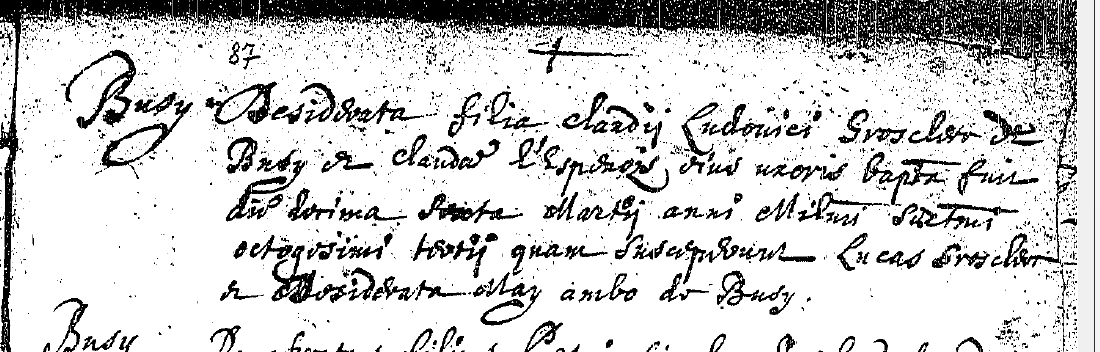 87
Busy Desiderata filia claudij Ludovici Grosclerc de
Busy et claudae l'Esperoz, eius uxoris bapta fuit
die decima sexta Martij anni Mill'mi Sextmi
octogesimi tertij quam susceperunt Lucas Grosclerc
et Desiderata May ambo de Busy.
Busy